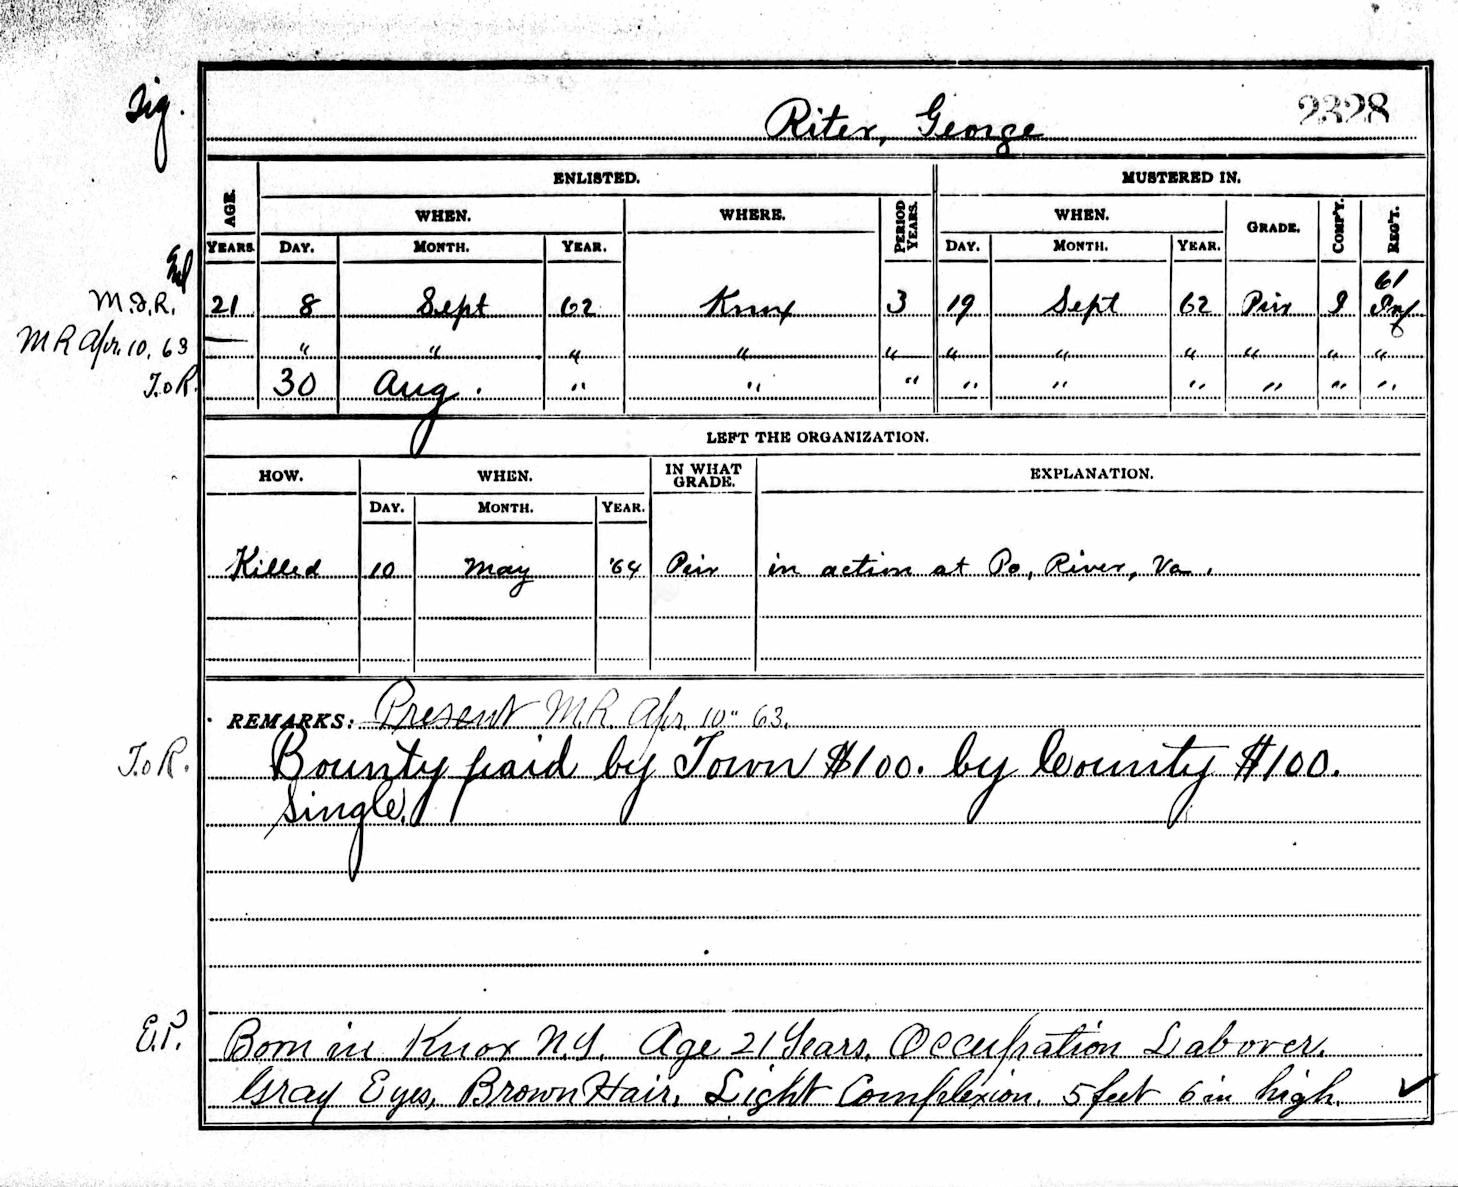 Sig.
Riter, George 2328
ENLISTED. MUSTERED IN.
AGE. WHEN. WHERE. PERIOD YEARS. WHEN. GRADE. COMP'Y. REG'T.
YEARS. DAY. MONTH. YEAR. DAY. MONTH. YEAR.
61
M.I.R. 21 8 Sept 62 Knox 3 19 Sept 62 Priv I Inf
M R Apr. 10, 63 — " " " " " " " " " " "
T.o R. 30 Aug. " " " " " " " " "
LEFT THE ORGANIZATION.
HOW. WHEN. IN WHAT GRADE. EXPLANATION.
DAY. MONTH. YEAR.
Killed 10 May '64 Priv in action at Po, River, Va.
REMARKS: Present M.R. Apr. 10" 63.
T.o R. Bounty paid by Town $100. by County $100.
Single.
E.P. Born in Knox N.Y. Age 21 Years. Occupation Laborer.
Gray Eyes, Brown Hair, Light Complexion. 5 feet 6 in high.